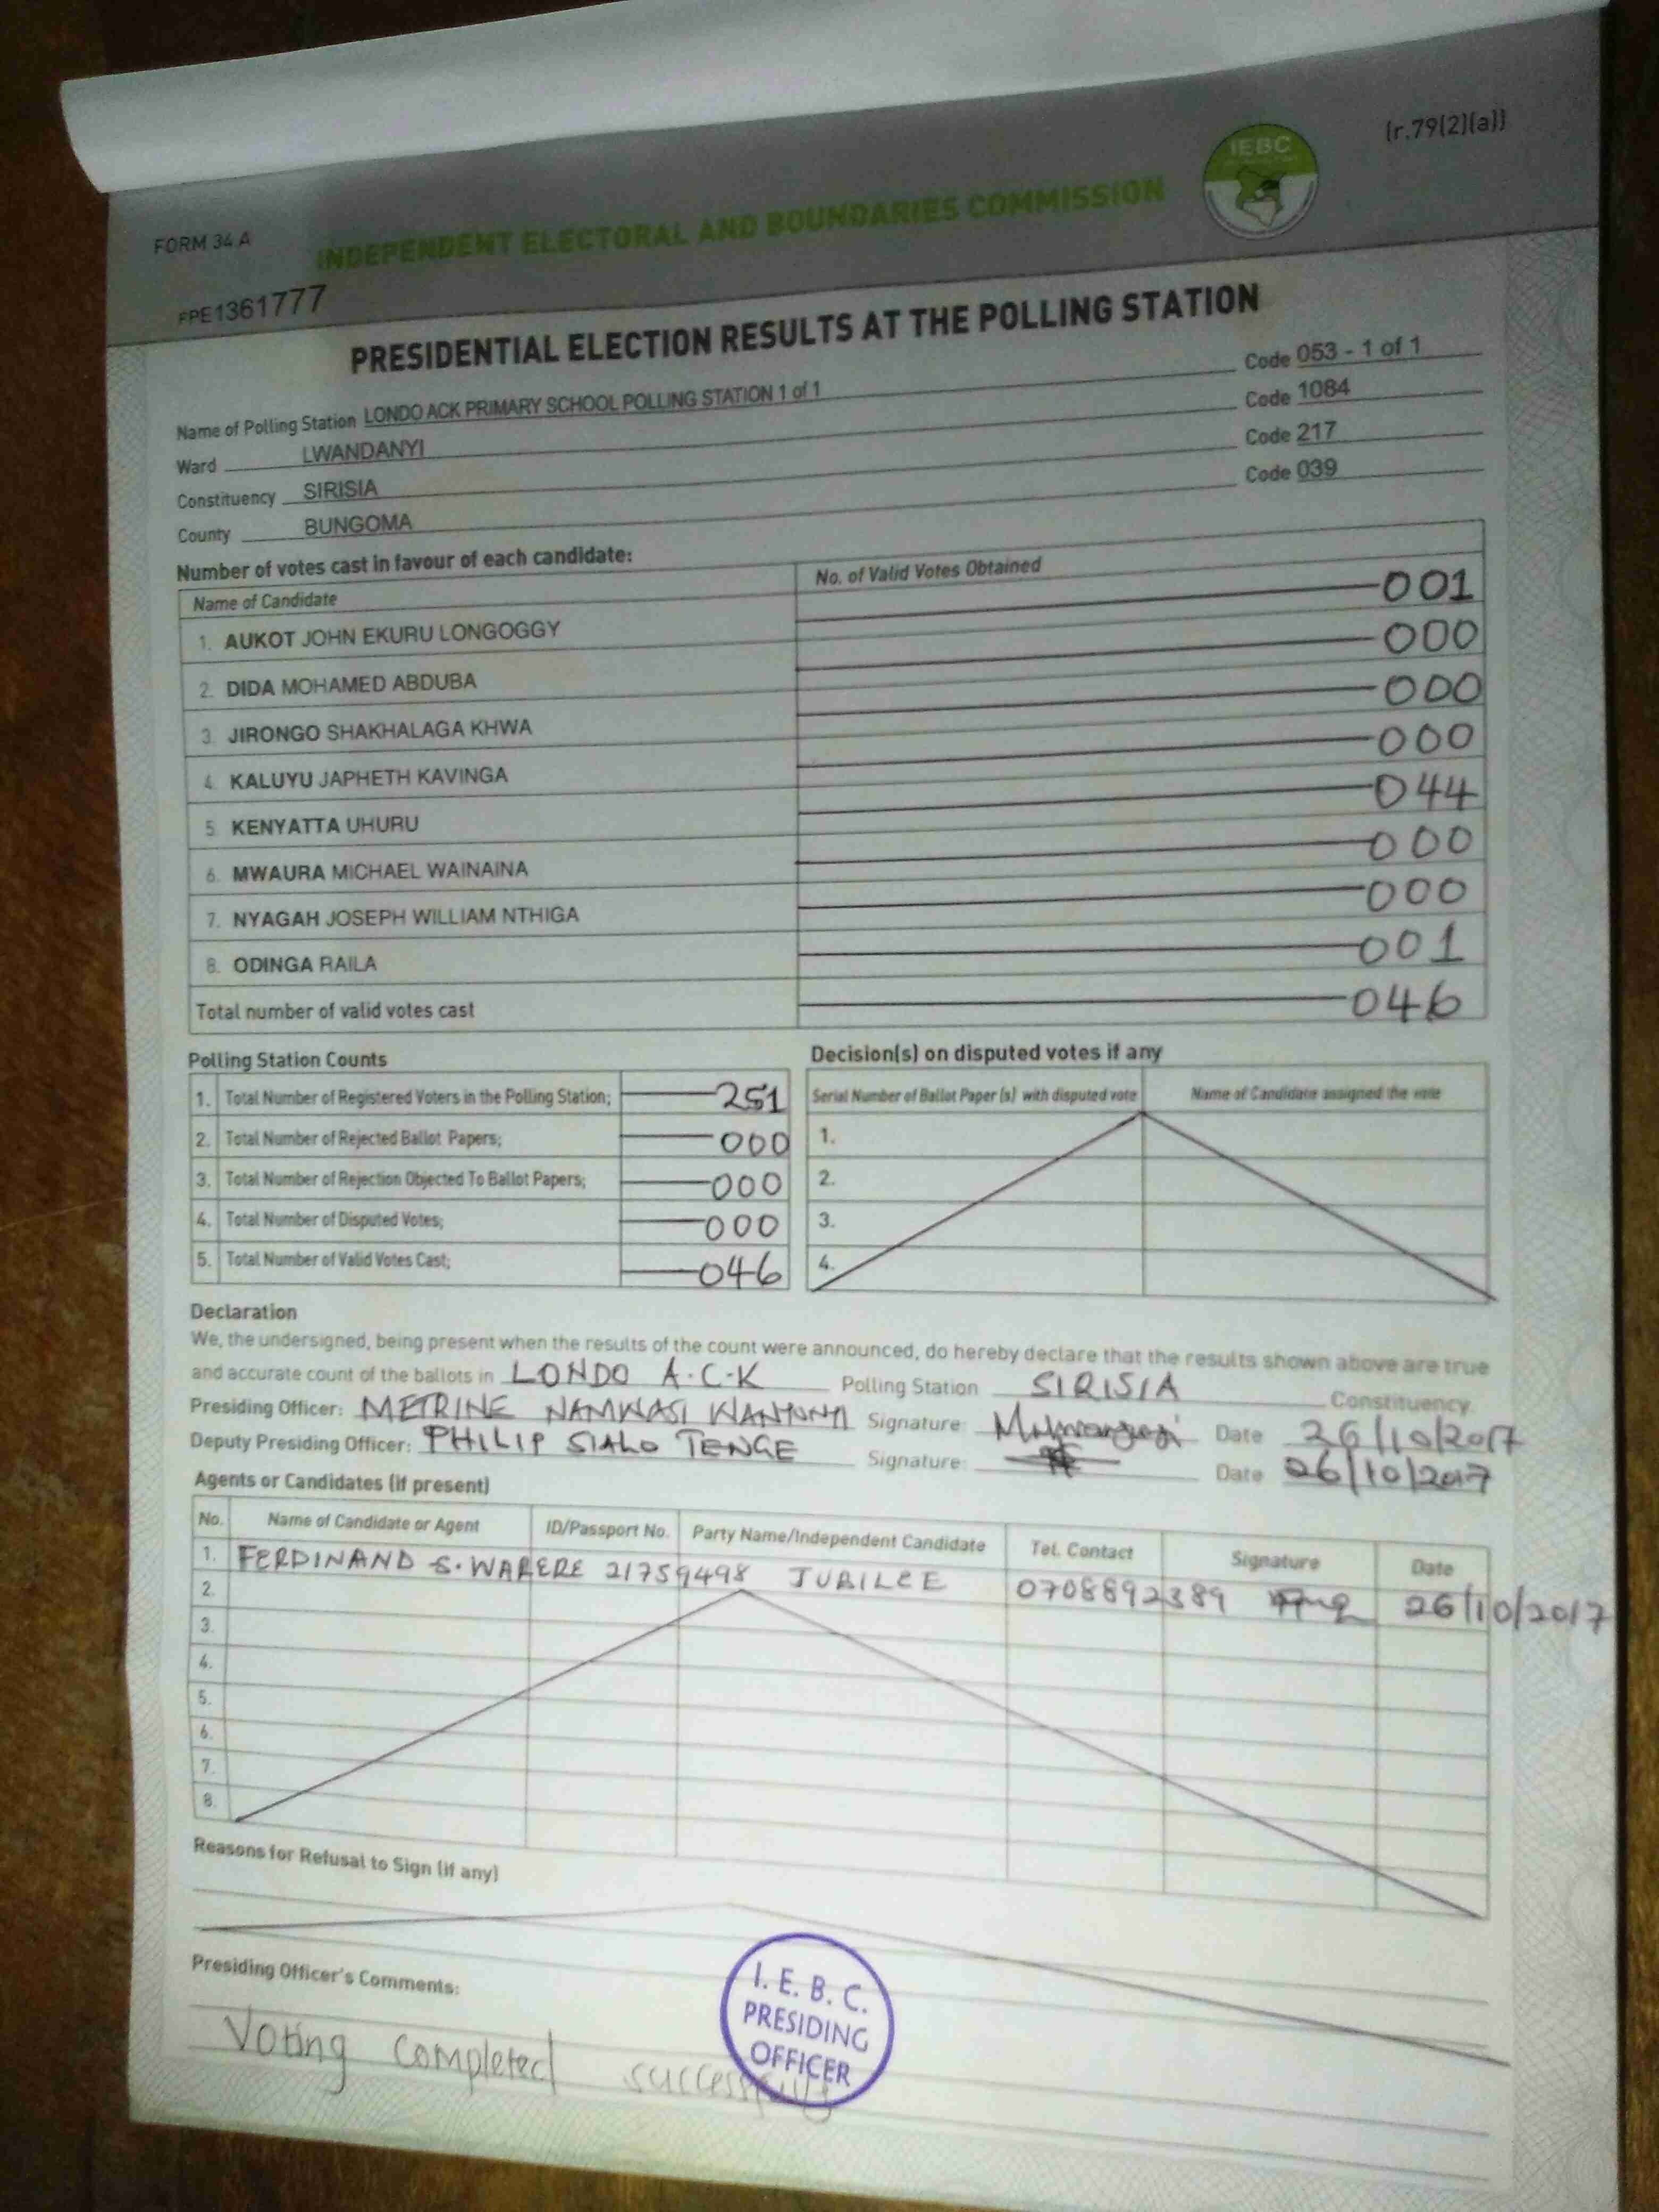 (r.79(2)(a))
IEBC
FORM 34 A
INDEPENDENT ELECTORAL AND BOUNDARIES COMMISSION
PPE1361777
PRESIDENTIAL ELECTION RESULTS AT THE POLLING STATION
Name of Polling Station LONDO ACK PRIMARY SCHOOL POLLING STATION 1 of 1 Code 053 - 1 of 1
Ward LWANDANYI Code 1084
Constituency SIRISIA Code 217
County BUNGOMA Code 039
Number of votes cast in favour of each candidate:
Name of Candidate No. of Valid Votes Obtained
1. AUKOT JOHN EKURU LONGOGGY 001
2. DIDA MOHAMED ABDUBA 000
3. JIRONGO SHAKHALAGA KHWA 000
4. KALUYU JAPHETH KAVINGA 000
5. KENYATTA UHURU 044
6. MWAURA MICHAEL WAINAINA 000
7. NYAGAH JOSEPH WILLIAM NTHIGA 000
8. ODINGA RAILA 001
Total number of valid votes cast 046
Polling Station Counts
1. Total Number of Registered Voters in the Polling Station; 251
2. Total Number of Rejected Ballot Papers; 000
3. Total Number of Rejection Objected To Ballot Papers; 000
4. Total Number of Disputed Votes; 000
5. Total Number of Valid Votes Cast; 046
Decision(s) on disputed votes if any
Serial Number of Ballot Paper (s) with disputed vote Name of Candidate assigned the vote
1.
2.
3.
4.
Declaration
We, the undersigned, being present when the results of the count were announced, do hereby declare that the results shown above are true
and accurate count of the ballots in LONDO A.C.K Polling Station SIRISIA Constituency.
Presiding Officer: METRINE NAMWASI Signature: Date 26/10/2017
Deputy Presiding Officer: PHILIP SIALO TENGE Signature: Date 26/10/2017
Agents or Candidates (if present)
No. Name of Candidate or Agent ID/Passport No. Party Name/Independent Candidate Tel. Contact Signature Date
1. FERDINAND S. WARERE 21759498 JUBILEE 0708892389 26/10/2017
2.
3.
4.
5.
6.
7.
8.
Reasons for Refusal to Sign (if any)
Presiding Officer's Comments:
Voting completed successfully
I. E. B. C.
PRESIDING
OFFICER